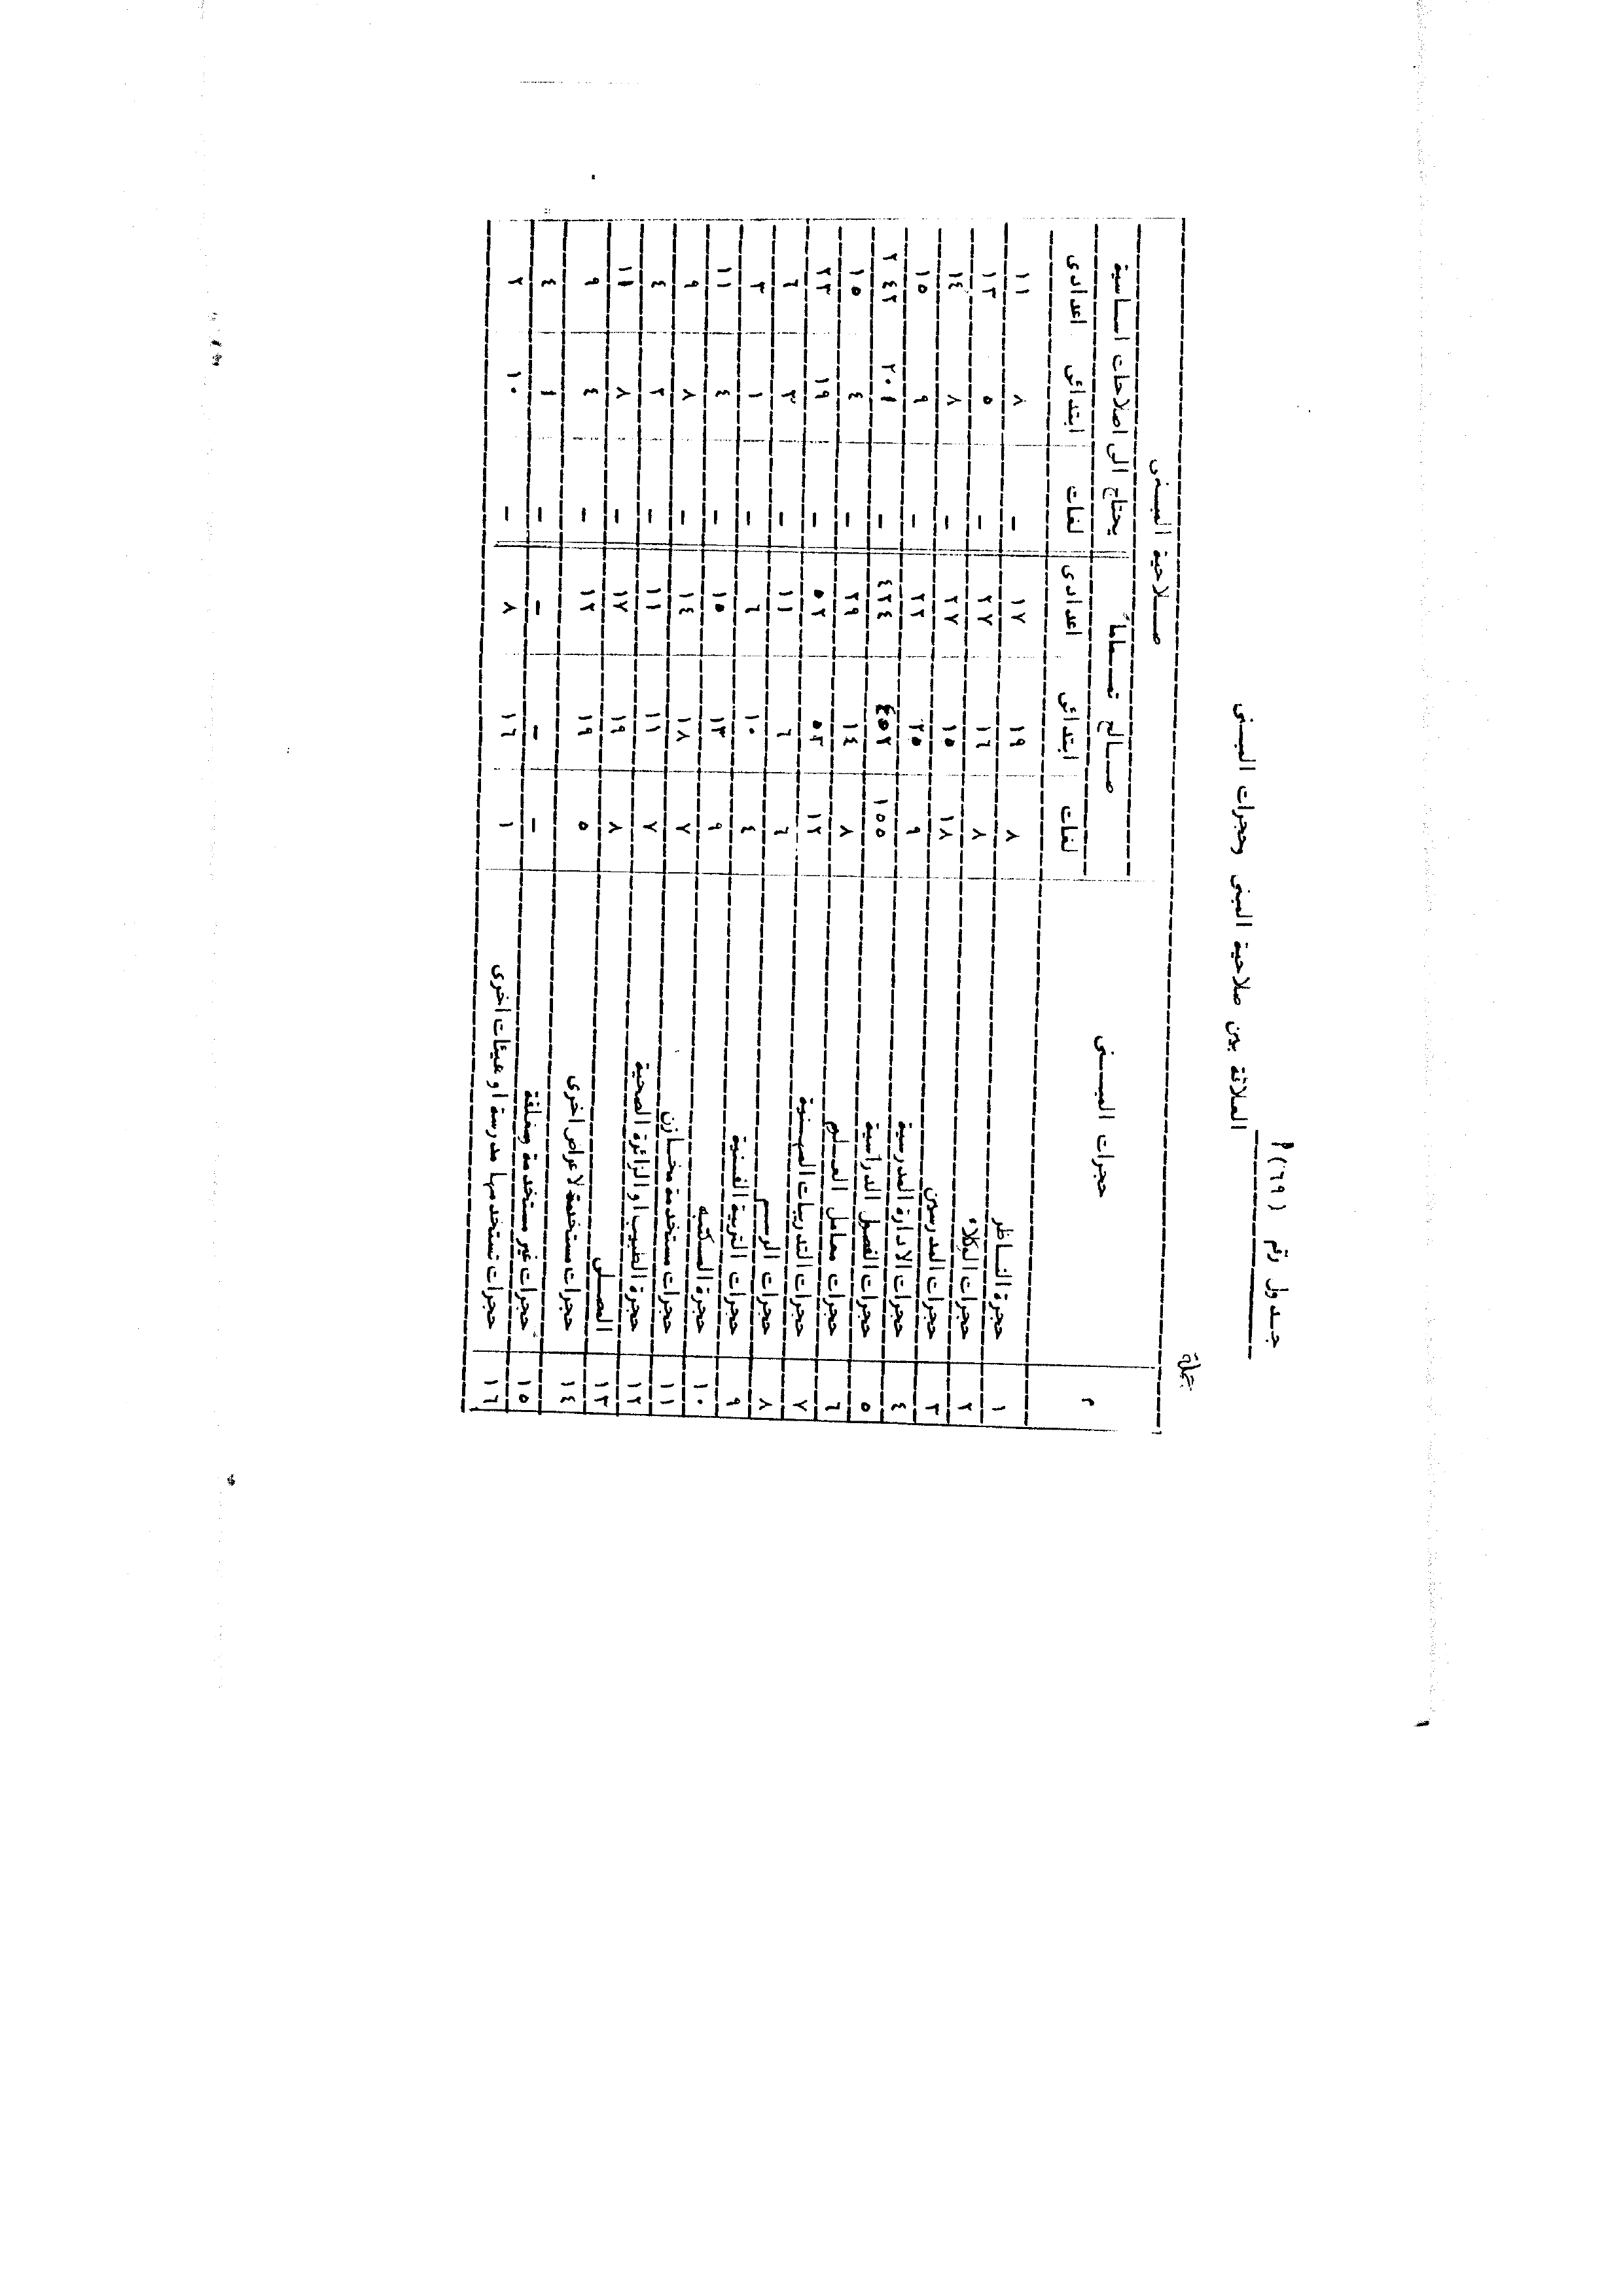 جدول رقم (٦٩) أ
العلاقة بين صلاحية المبنى وحجرات المبنى
جملة
صلاحية المبنى
م حجرات المبنى صالح تماماً يحتاج الى اصلاحات اساسية
لغات ابتدائى اعدادى لغات ابتدائى اعدادى
١ حجرة الناظر ٨ ١٩ ١٧ - ٨ ١١
٢ حجرات الوكلاء ٨ ١٦ ٢٧ - ٥ ١٣
٣ حجرات المدرسين ١٨ ١٥ ٢٧ - ٨ ١٤
٤ حجرات الادارة المدرسية ٩ ٢٥ ٢٢ - ٩ ١٥
٥ حجرات الفصول الدراسية ١٥٥ ٤٥٢ ٤٢٤ - ٢٠١ ٢٤٢
٦ حجرات معامل العلوم ٨ ١٤ ٢٩ - ٤ ١٥
٧ حجرات التدريبات المهنية ١٢ ٥٣ ٥٢ - ١٩ ٢٣
٨ حجرات الرسم ٦ ٦ ١١ - ٣ ٦
٩ حجرات التربية الفنية ٤ ١٠ ٦ - ١ ٣
١٠ حجرة المكتبه ٩ ١٣ ١٥ - ٤ ١١
١١ حجرات مستخدمة مخازن ٧ ١٨ ١٤ - ٨ ٩
١٢ حجرة الطبيب او الزائرة الصحية ٧ ١١ ١١ - ٢ ٤
١٣ المصلى ٨ ١٩ ١٧ - ٨ ١١
١٤ حجرات مستخدمة لاغراض اخرى ٥ ١٩ ١٢ - ٤ ٩
١٥ حجرات غير مستخدمة ومغلقة - - - - ١ ٤
١٦ حجرات تستخدمها مدرسة او هيئات اخرى ١ ١٦ ٨ - ١٠ ٢